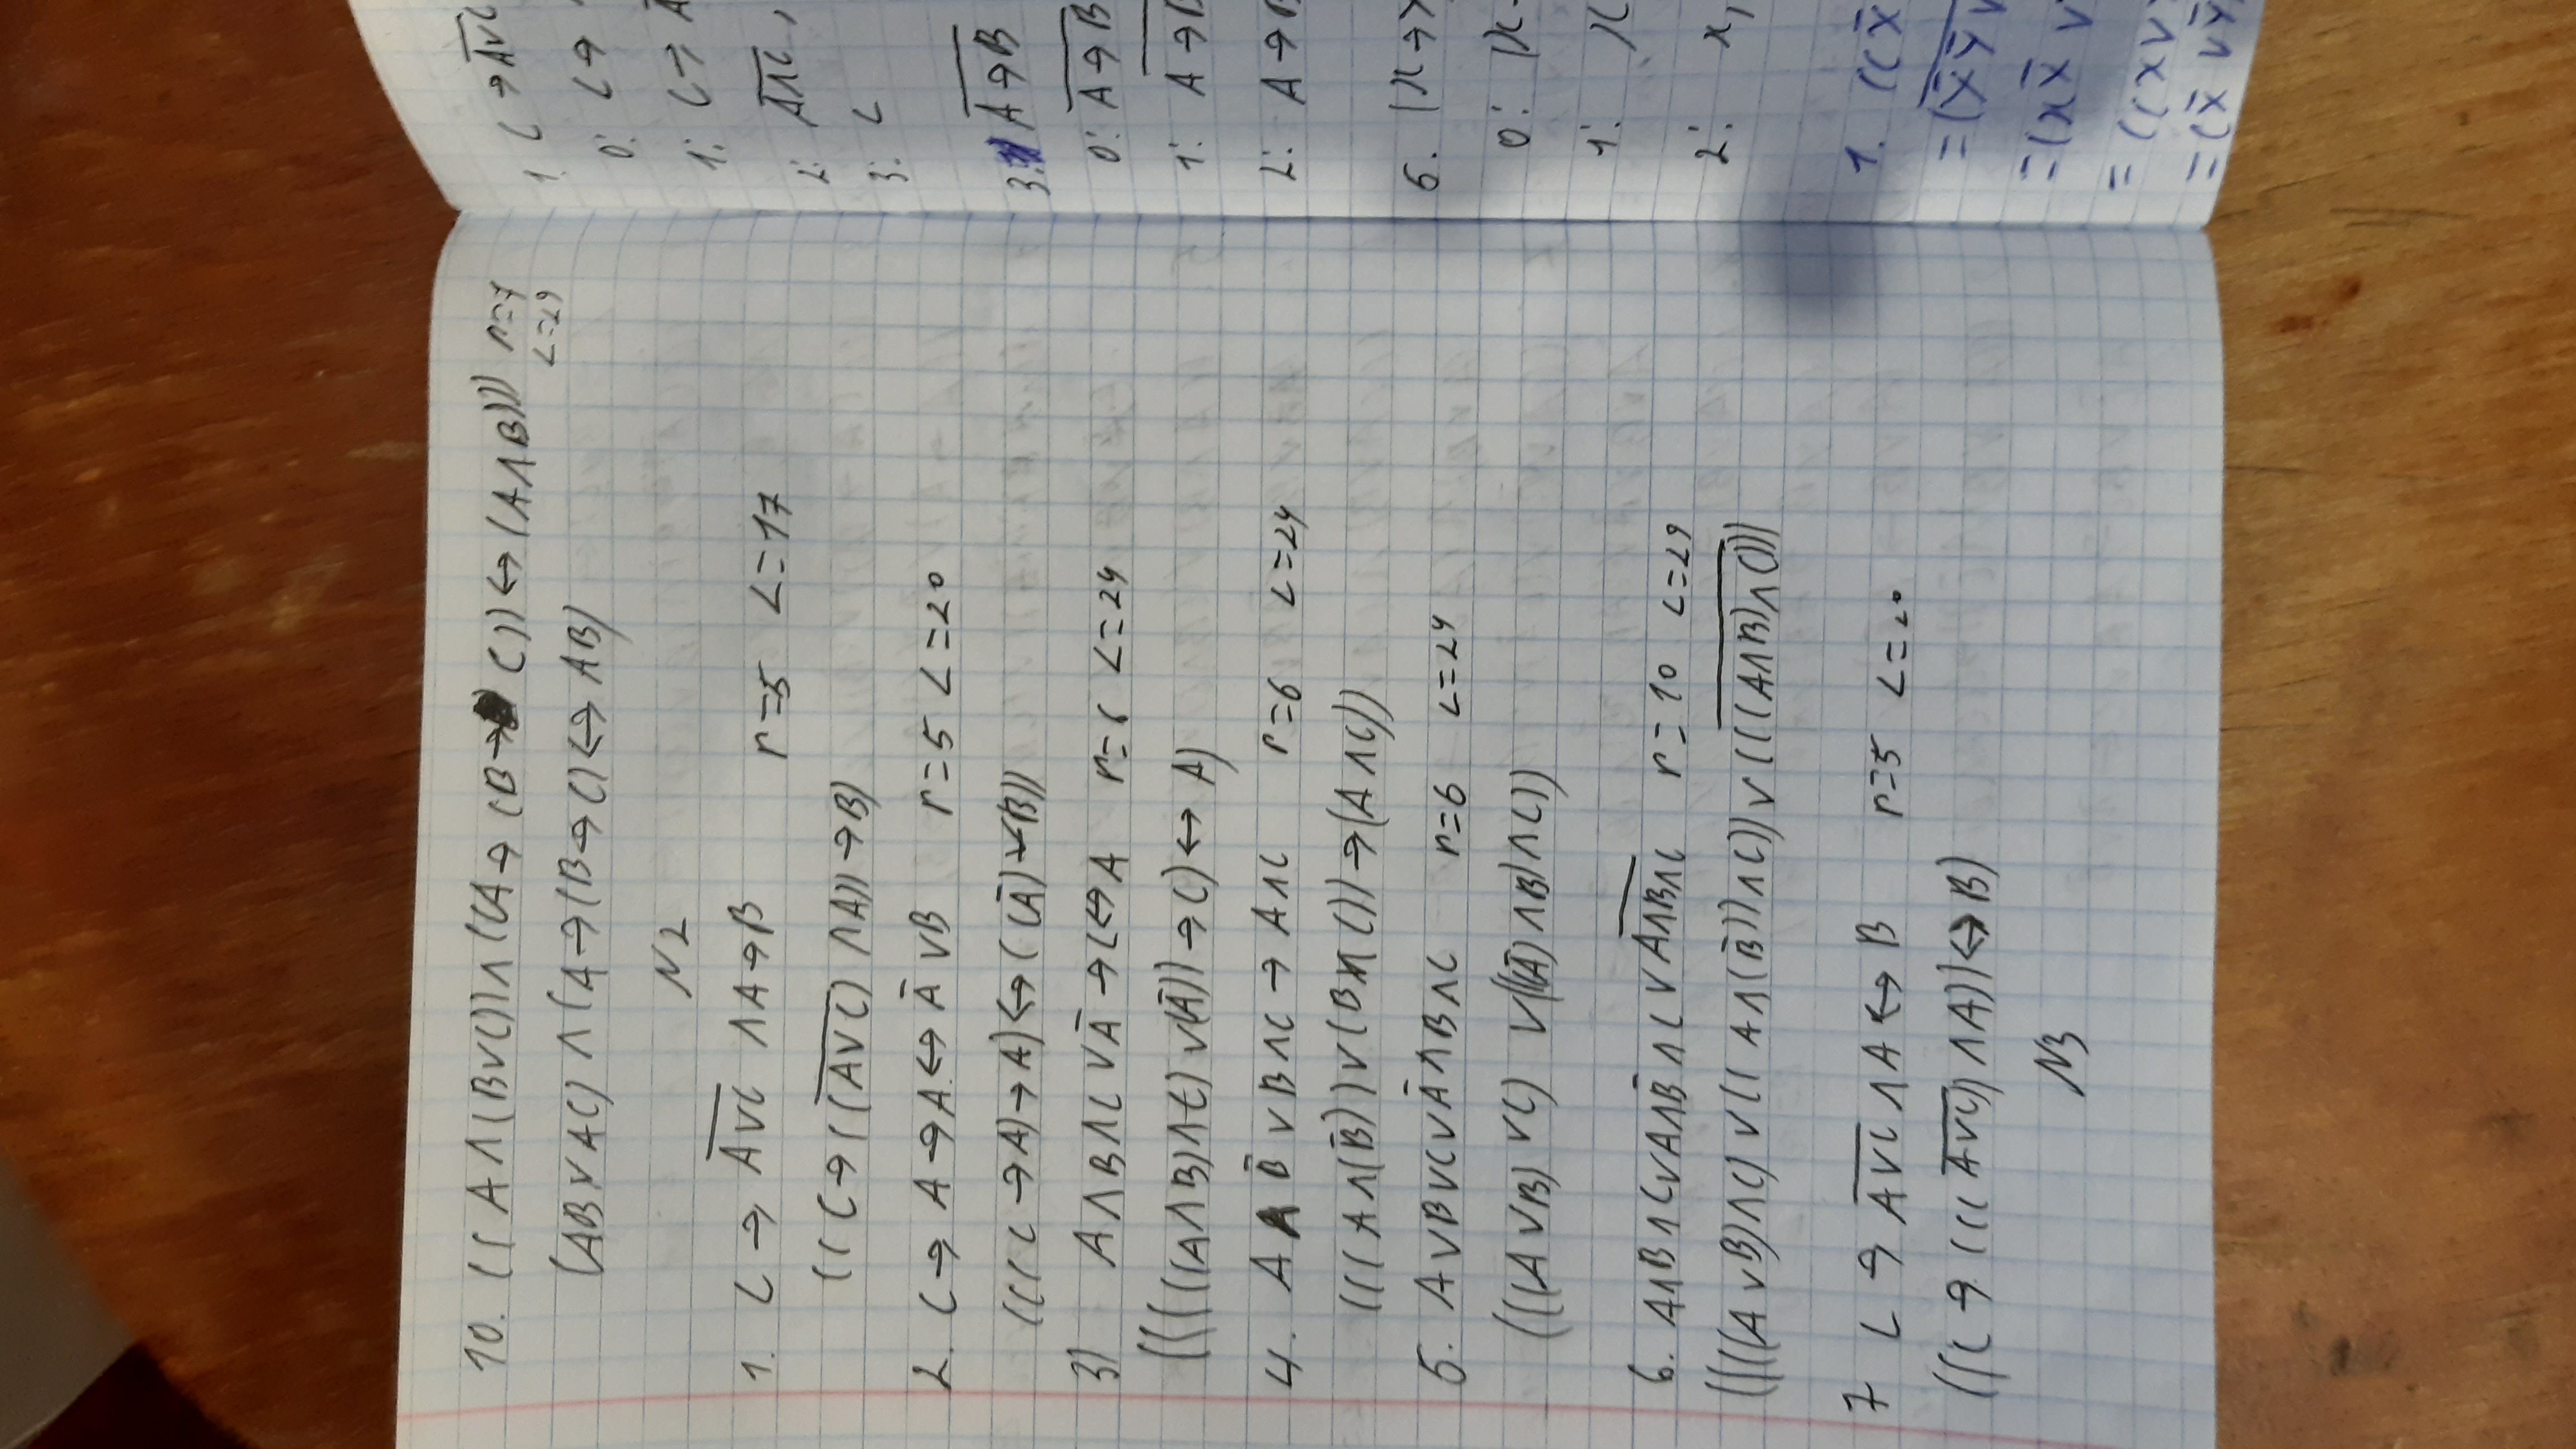 10. ((A∧(B∨C))∧((A→(B→C))↔(A∧B))) n=7
L=29
(AB∨AC)∧(A→(B→C)↔AB)
N2
1. C→A̅∨̅C̅∧A→B r=5 L=17
((C→((A̅∨̅C̅)∧A))→B)
2. C→A→A↔A̅∨B r=5 L=20
(((C→A)→A)↔((A̅)∨B))
3) A∧B∧C∨A̅→C↔A r=6 L=24
(((((A∧B)∧C)∨(A̅))→C)↔A)
4. A∧B̅∨B∧C→A∧C r=6 L=24
(((A∧(B̅))∨(B∧C))→(A∧C))
5. A∨B∨C∨A̅∧B∧C r=6 L=24
(((A∨B)∨C)∨(((A̅)∧B)∧C))
6. A∧B∧C∨A∧B̅∧C∨A̅∧̅B̅∧̅C̅ r=10 L=29
((((A∨B)∧C)∨((A∧(B̅))∧C))∨(((̅A̅∧̅B̅)̅∧̅C̅)))
7 C→A̅∨̅C̅∧A↔B r=5 L=20
((C→(((A̅∨̅C̅))∧A))↔B)
N3
1 C→A̅∨̅C̅
0: C→
1: C→A̅
2: A̅∧̅C̅,
3: C
3. A̅→̅B̅
0: A̅→̅B̅
1: A→B
2: A→B
6. (x→
0: (x
1: x
2: x,
1. ((x̅
=(x̅y̅∨
=(xx̅∨
=((x∨
=(x̅∨y̅